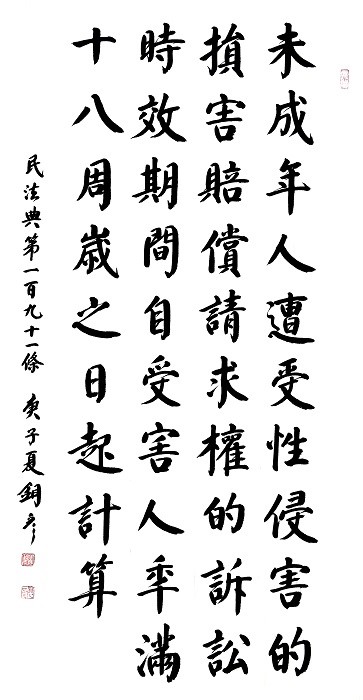 未成年人遭受性侵害的
損害賠償請求權的訴訟
時效期間自受害人年滿
十八周歲之日起計算
民法典第一百九十一條 庚子夏銅